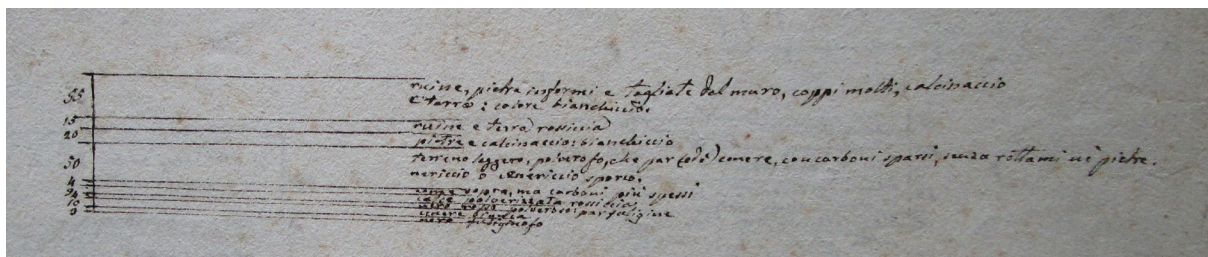 55 ruine, pietre informi e tagliate del muro, coppi molti, calcinaccio
e terra: colore bianchiccio.
15 ruine e terra rossiccia
20 pietre e calcinaccio: bianchiccio
50 terreno leggero, polveroso, che par cenere, con carboni sparsi, senza rottami nè pietre.
nericcio o cenericcio sporco.
4 come sopra, ma carboni più spessi
calce polverizzata rossiccia
10 polveroso: par fuligine
cenere bianca
nero